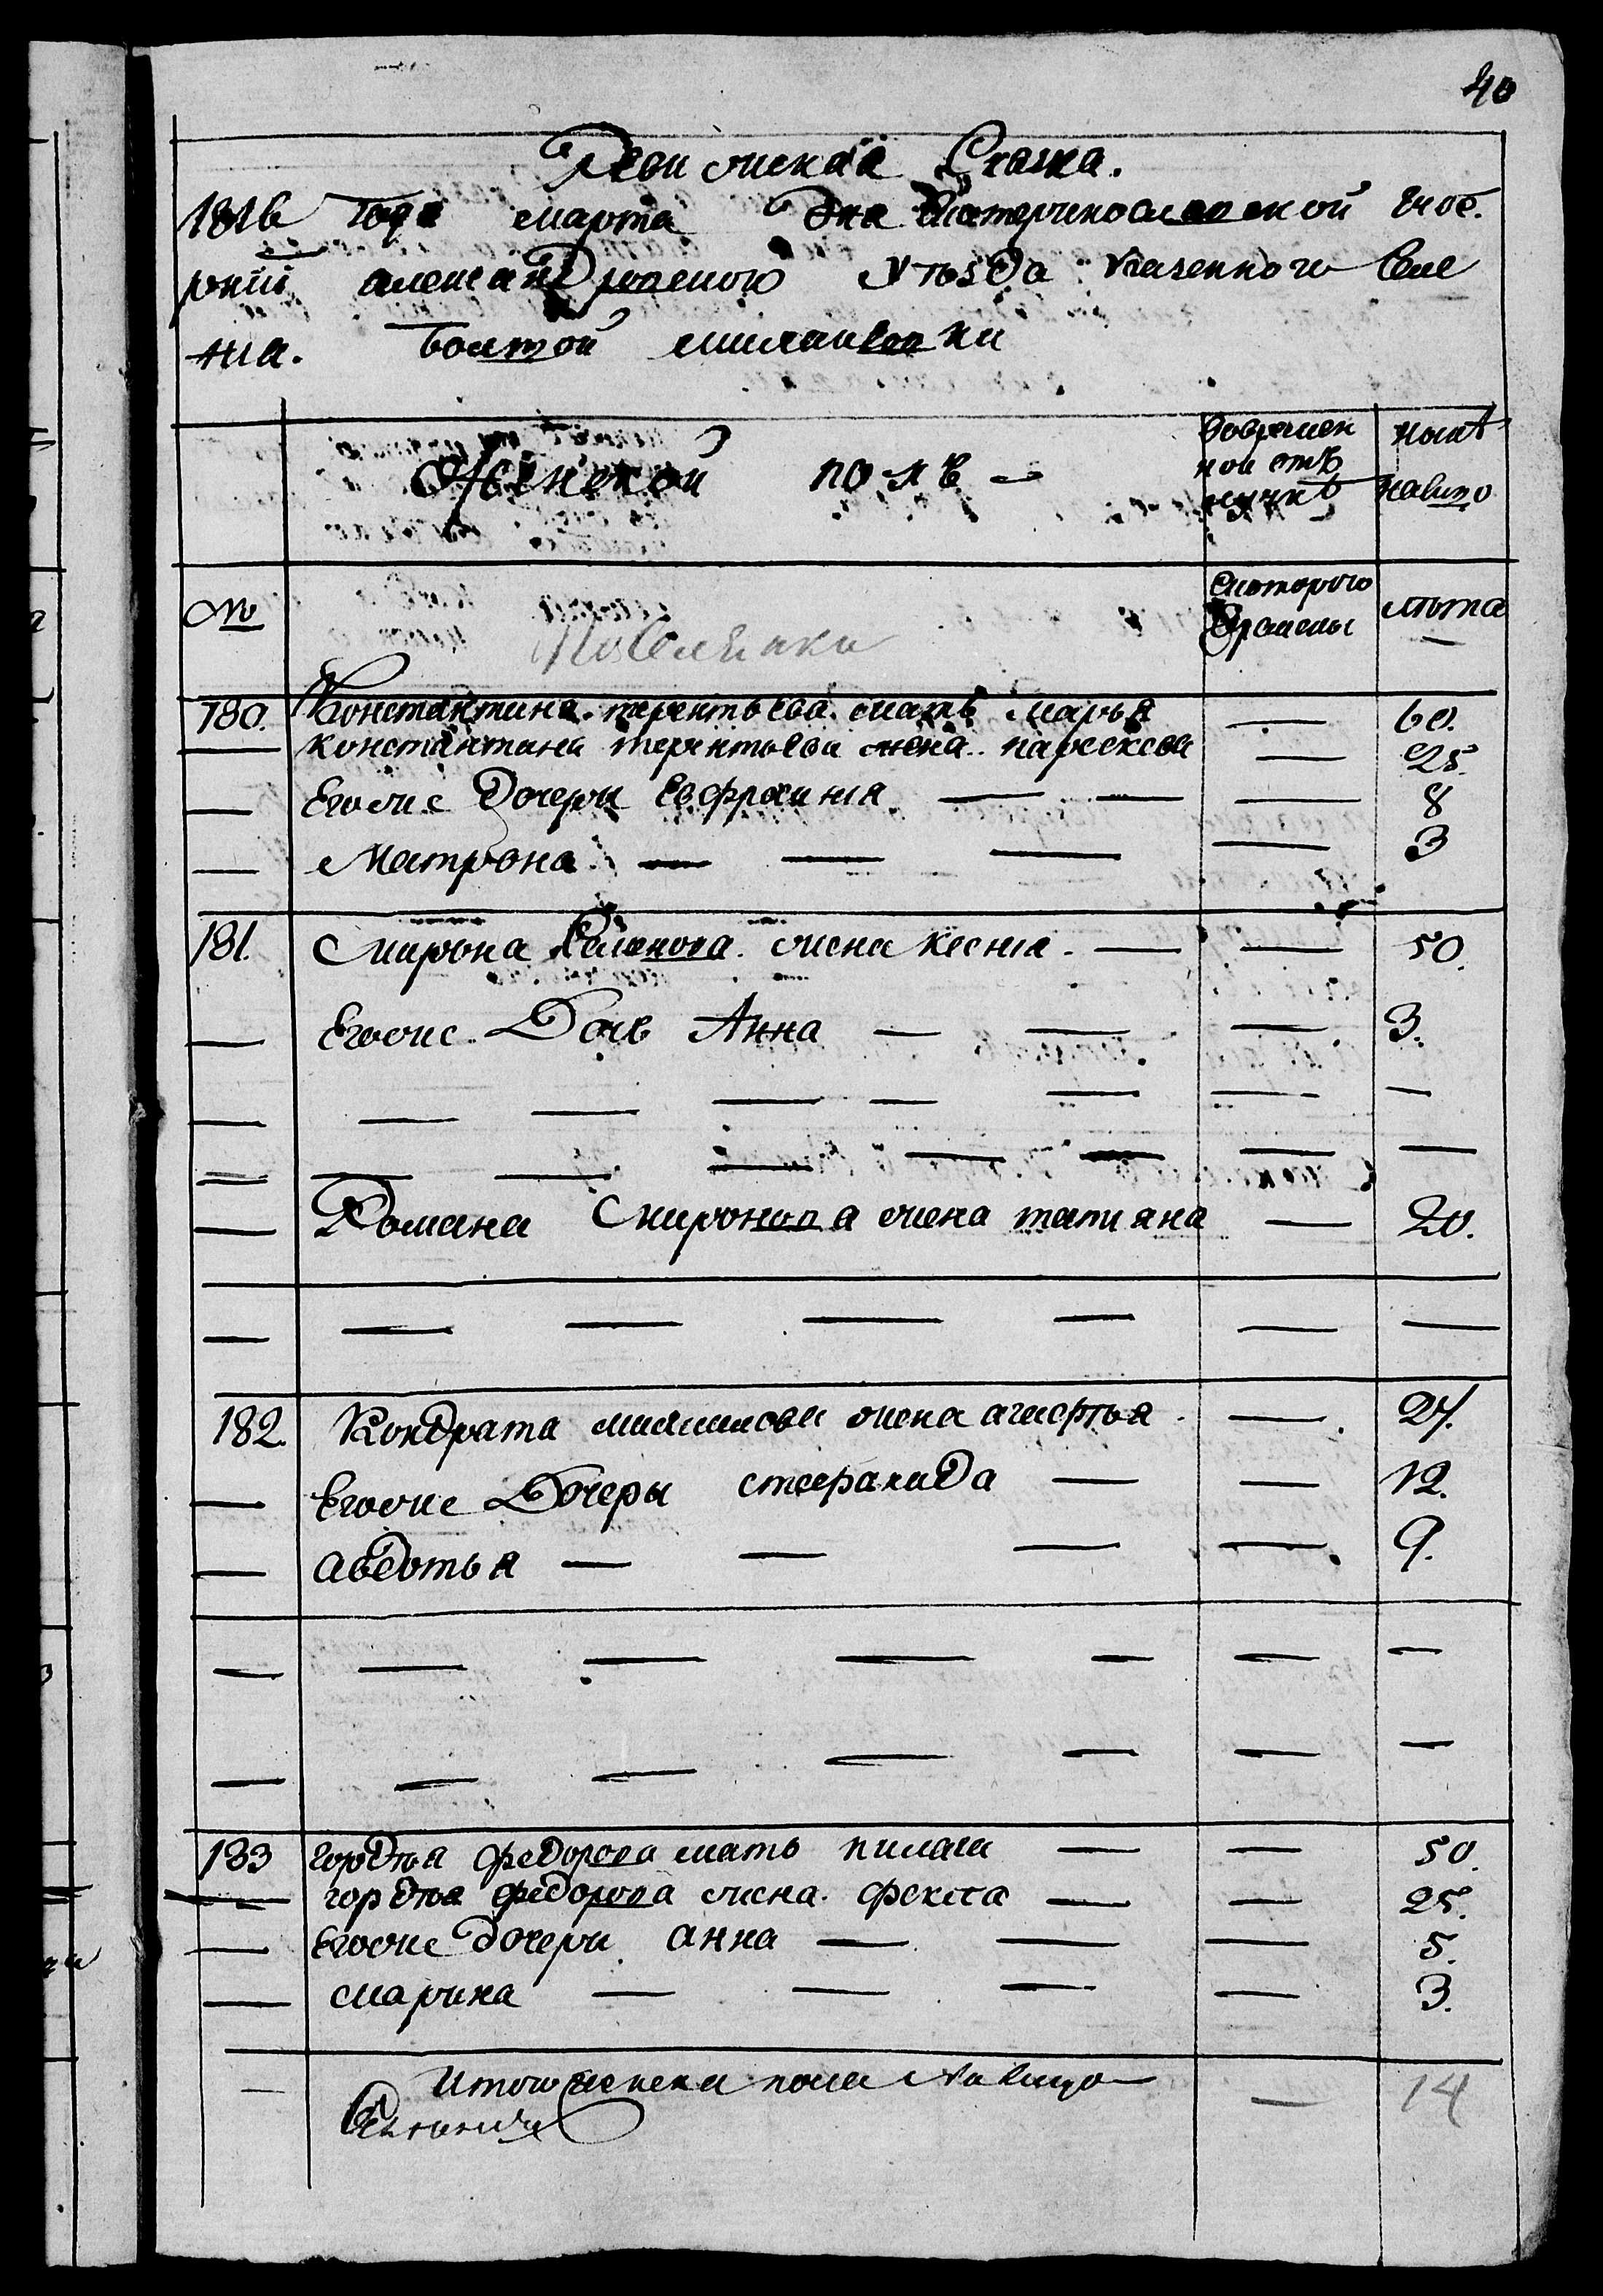 40
Ревижская Сказка.
1816 года марта дня Екатеринославской губ.
рнии александровского уъзда казенного селе
ния. Болтой
Женской полъ —
Во временной отлучкѣ
Нынѣ на лицо
№
Поселянки
Съ которого времены
лѣта
180. Константина терентьева мать марья — 60.
— константина терентьева жена парескева — 25.
— Егоже дочери Евфросиния — — — 8
— Матрона — — — — 3
181. Мирона жена ксения — — 50.
— Егоже Дочь Анна — — — 3.
— — — — — — — —
— — — — — — — —
— Романа Миронова жена татияна — 20.
— — — — — — —
182. Кондрата жена агафья — 27.
— Егоже Дочеры степанида — — 12.
— авдотья — — — — 9.
— — — — — — —
— — — — — — —
183 гордѣя федорова мать пилагея — — 50.
— гордѣя федорова жена фекла — — 25.
— Егоже дочери анна — — — 5.
— марина — — — — 3.
— Итого женска пола на лицо — 14